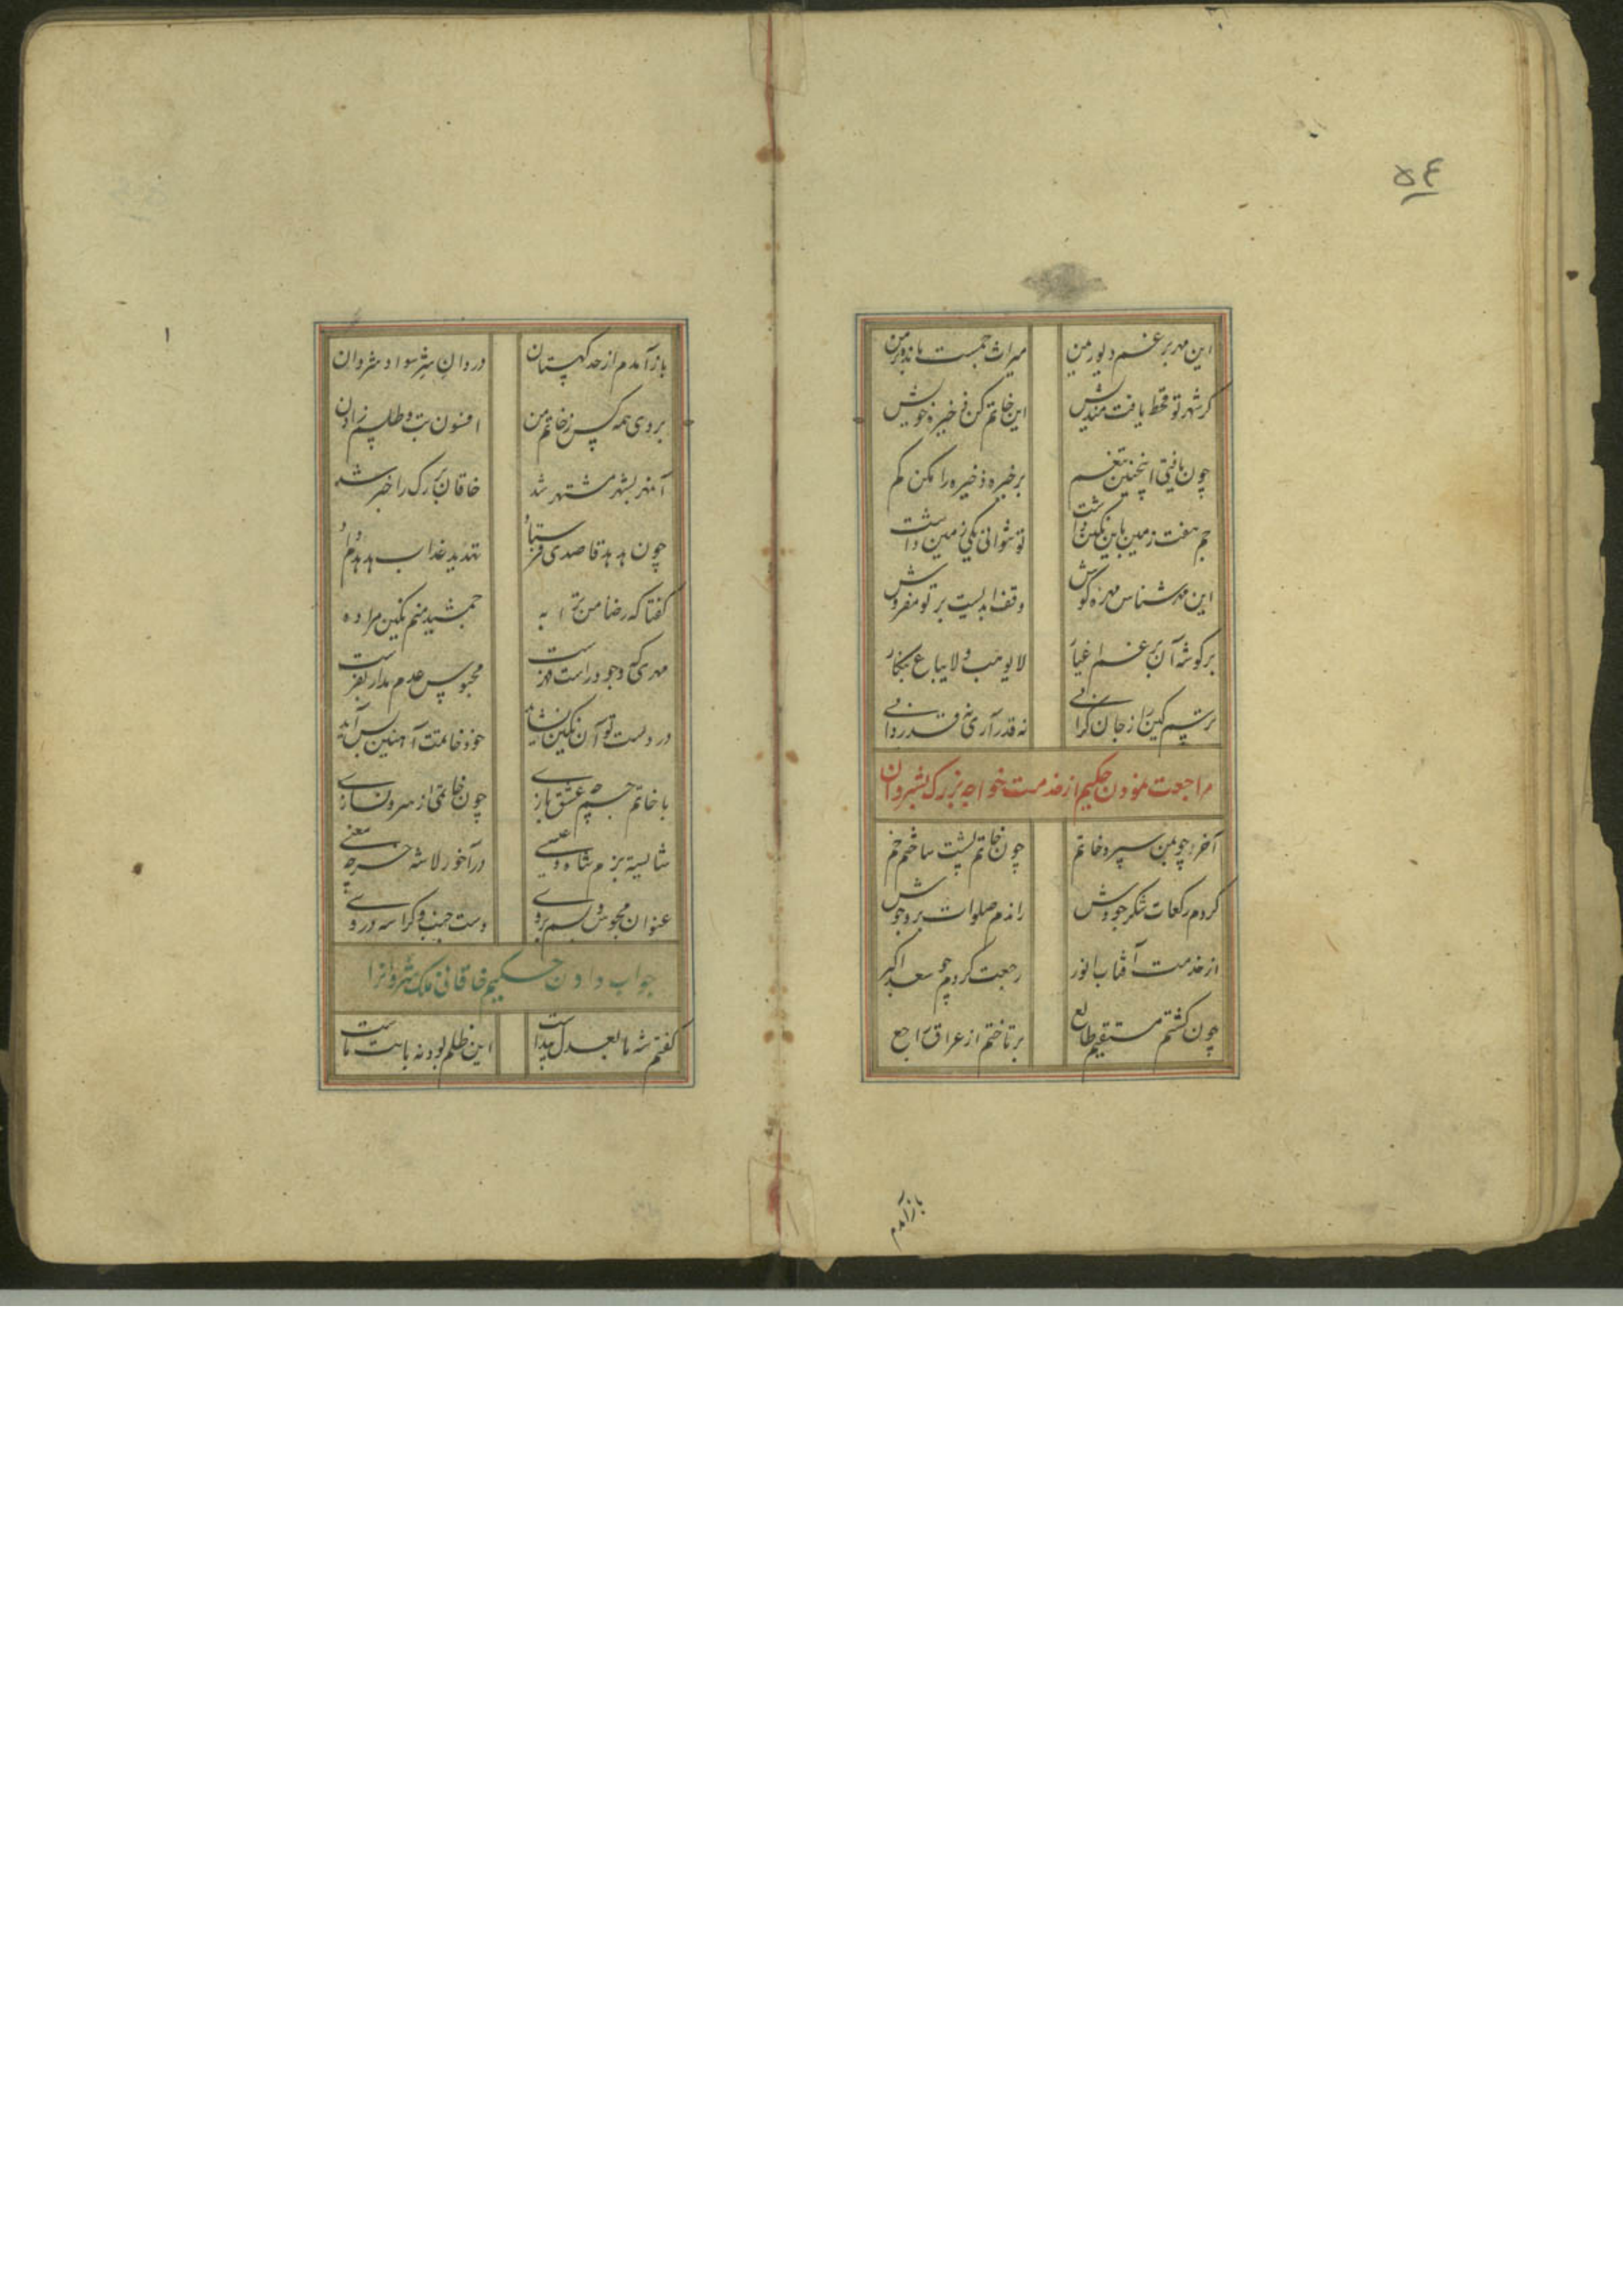 ۵۴
این مهر برغم دیو رمین میراث جمست مانده بر من
گر شهر تو قحط یافت مندیش این خاتم کن ذخیره خویش
چون یافتی اینچنین تغنم برخیره ذخیره را مکن کم
جم هفت زمین باین نگین داشت تو نتوانی یکی زمین داشت
این مهر شناس مهره گوش وقف ابدیست بر تو مفروش
بر گوشه آن برغم اغیار لا یوهب و لا یباع بنگار
ترسم کین را ز جان گرانی نه قدر آری نه قدر دانی
مراجعت نمودن حکیم از خدمت خواجه بزرگ بشروان
آخر چو بمن سپرد خاتم چون خاتم پشت ساختم خم
کردم رکعات شکر جودش راندم صلوات بر وجودش
از خدمت آفتاب انور رجعت کردم چو سعد اکبر
چون گشتم مستقیم طالع برتافتم از عراق راجع
باز آمدم
باز آمدم از حد کهستان در وان شر سواد شروان
بردی همه کس ز خاتم من افسون تب و طلسم زادن
آمهر بشهر مشتهر شد خاقان بزرگ را خبر شد
چون هدهد قاصدی فرستاد تهدید عذاب هدهدم داد
گفتا که رضای من ترا به جمشید منم نگین مرا ده
مهری که وجود راست مهرست محبوس عدم مدار نغزست
در دست تو آن نگین نشاید خود خاتمت آهنین بس آید
با خاتم جم چه عشق بازی چون خاتمی از سرون سازی
شایسته بزم شاه و عیسی در آخور لاشه خر چه معنی
عنوان مجوس و بسم بر وی دست جنب و کراسه در وی
جواب دادن حکیم خاقانی ملک شروانرا
گفتم شه ما بعدل پیداست این ظلم بود نه بابت ماست